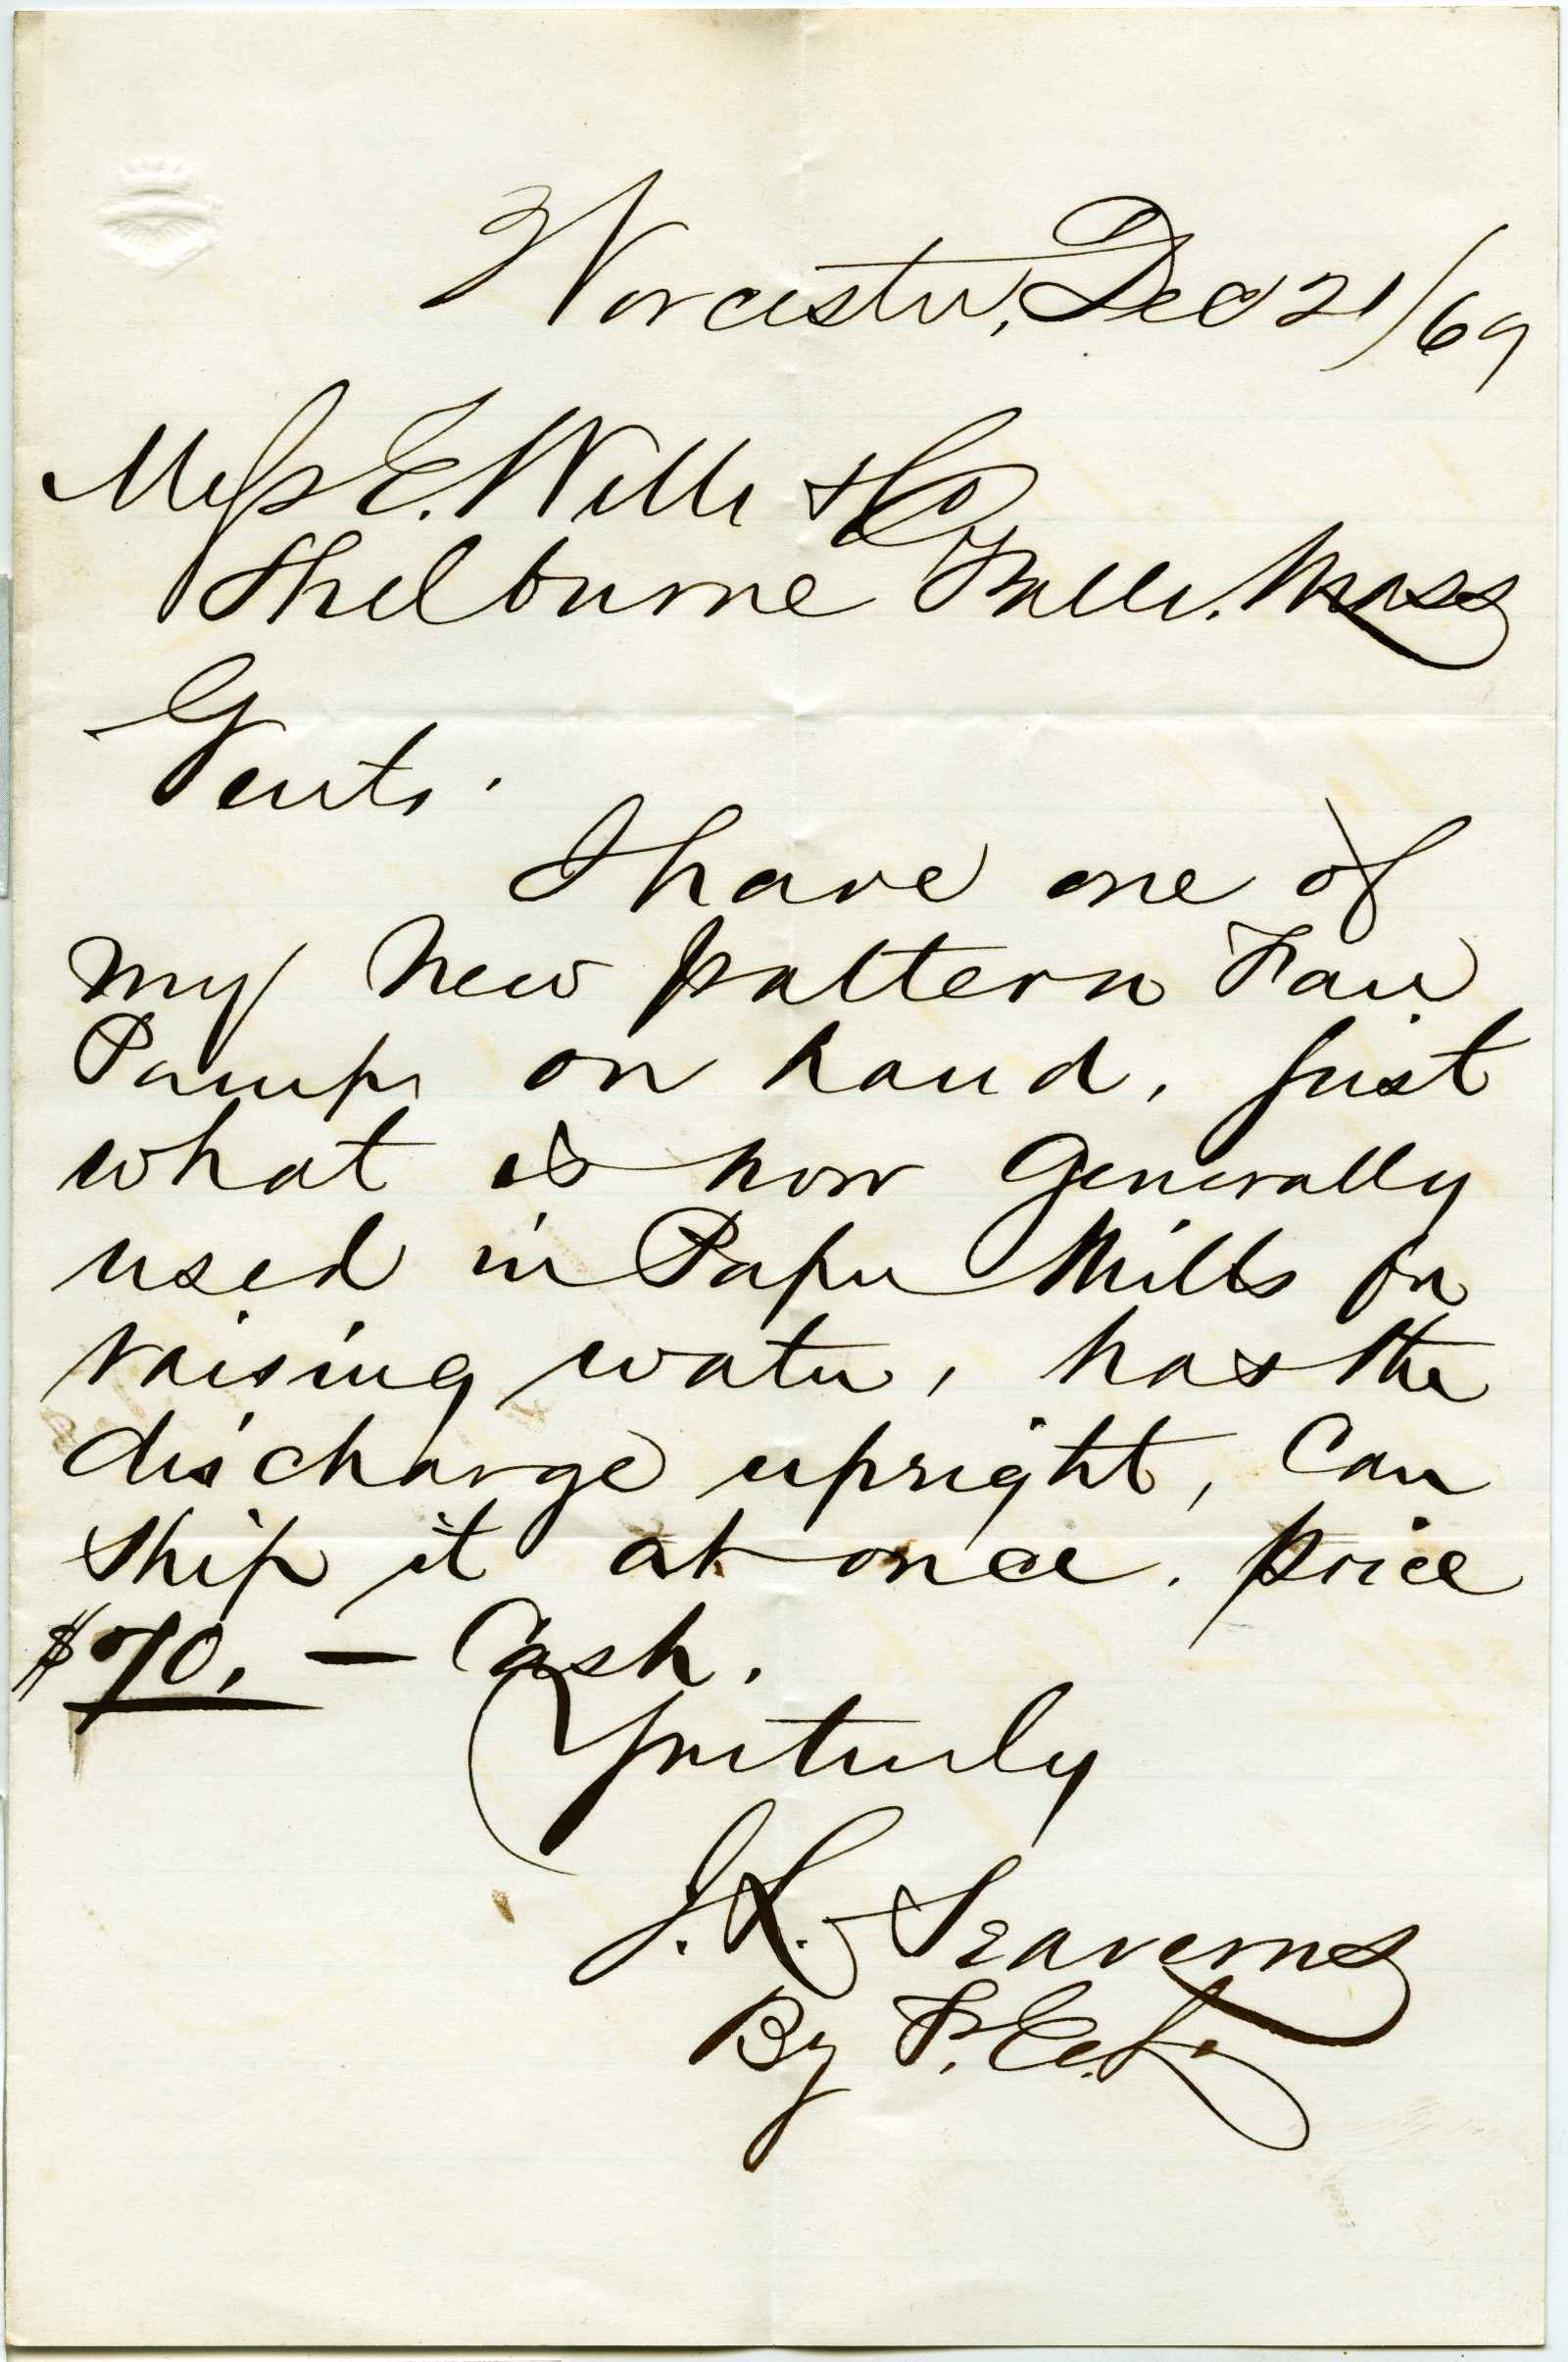 Worcester, Dec 21/69
Messrs E. Wells & Co
Shelburne Falls. Mass
Gents.
I have one of
my New pattern Fan
Pumps on hand, just
what is now Generally
used in Paper Mills for
raising water, has the
discharge upright, Can
Ship it at once. price
$70. — Cash.
Yours truly
J. S.
By F. E.